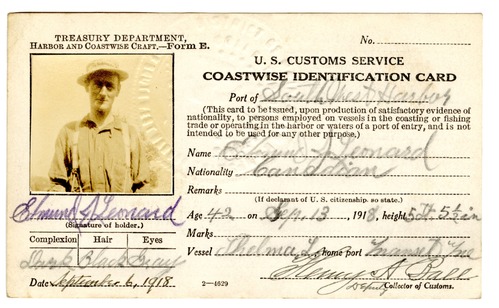 TREASURY DEPARTMENT,
HARBOR AND COASTWISE CRAFT.—FORM E.
No.
U. S. CUSTOMS SERVICE
COASTWISE IDENTIFICATION CARD
Port of South West Harbor
(This card to be issued, upon production of satisfactory evidence of
nationality, to persons employed on vessels in the coasting or fishing
trade or operating in the harbor or waters of a port of entry, and is not
intended to be used for any other purpose.)
Name Edmund S. Leonard
Nationality Canadian
Remarks
(If declarant of U. S. citizenship, so state.)
Age 42 on Sep. 13, 1918, height 5 ft 5½ in
Marks
Vessel Thelma home port
Deputy Collector of Customs.
Edmund S Leonard
(Signature of holder.)
Complexion Hair Eyes
Dark Black Gray
Date September 6, 1918
2—4629